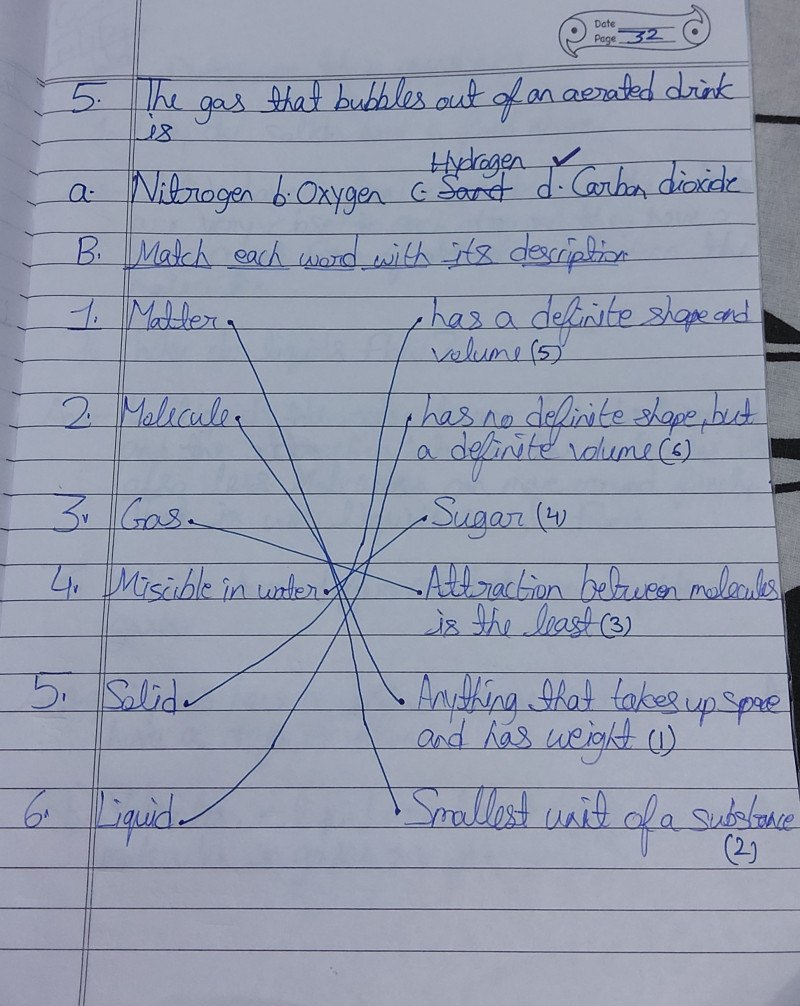 Date
Page 32
5. The gas that bubbles out of an aerated drink
is
Hydrogen ✓
a. Nitrogen b. Oxygen c. Sand d. Carbon dioxide
B. Match each word with its description
1. Matter. . has a definite shape and
volume (5)
2. Molecule. . has no definite shape, but
a definite volume (6)
3. Gas. . Sugar (4)
4. Miscible in water. . Attraction between molecules
is the least (3)
5. Solid. . Anything that takes up space
and has weight (1)
6. Liquid. . Smallest unit of a substance
(2)